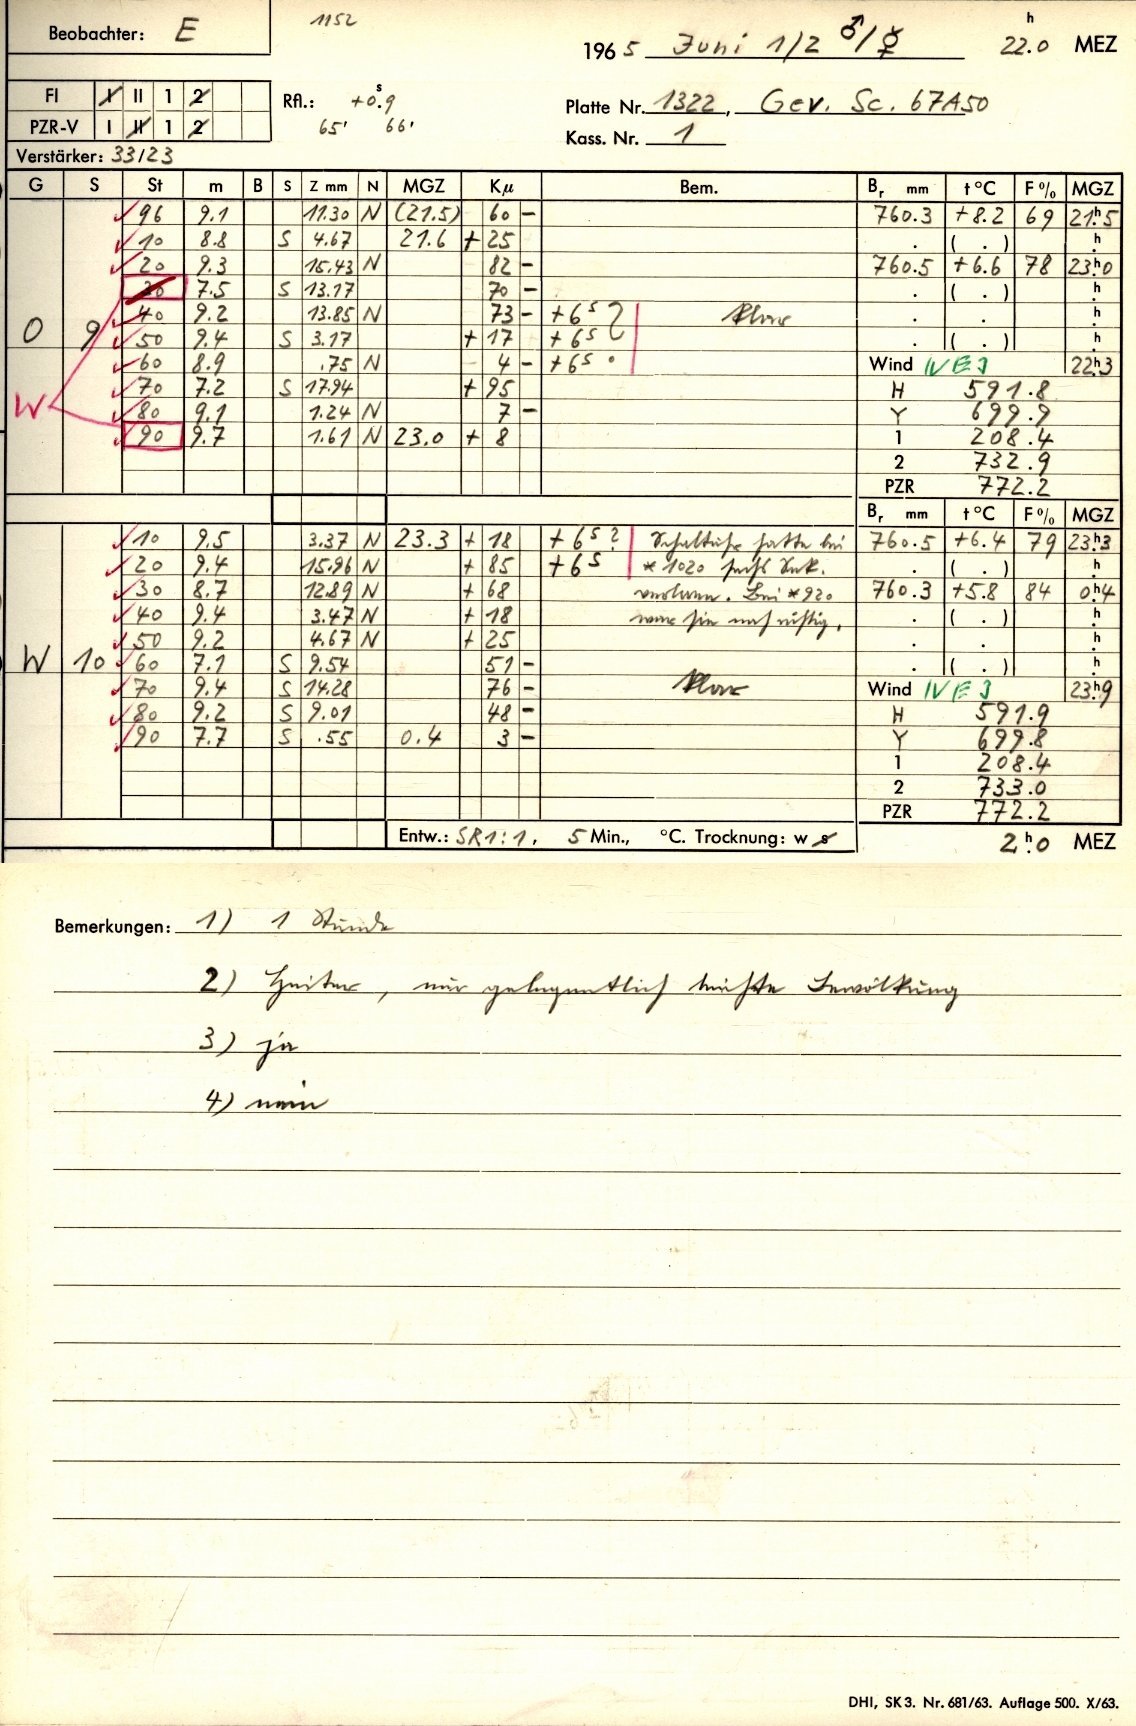 Beobachter: E
1152
1965 Juni 1/2 ♂/☿ 22.0 h MEZ
FI I II 1 2
PZR-V I II 1 2
Rfl.: +0.9 s
65' 66'
Platte Nr. 1322, Gev. Sc. 67A50
Kass. Nr. 1
Verstärker: 33/23
G S St m B S Z mm N MGZ Kμ Bem. Br mm t °C F % MGZ
96 9.1 11.30 N (21.5) 60 - 760.3 +8.2 69 21.h5
10 8.8 S 4.67 21.6 + 25 . ( . ) h
20 9.3 15.43 N 82 - 760.5 +6.6 78 23.h0
30 7.5 S 13.17 70 - . ( . ) h
40 9.2 13.85 N 73 - +6s ? Klar . . h
O 9 50 9.4 S 3.17 + 17 +6s . ( . ) h
60 8.9 .75 N 4 - +6s . Wind IV E 3 22.h3
70 7.2 S 17.94 + 95 H 591.8
W 80 9.1 1.24 N 7 - Y 699.9
90 9.7 1.61 N 23.0 + 8 1 208.4
2 732.9
PZR 772.2
Br mm t °C F % MGZ
10 9.5 3.37 N 23.3 + 18 +6s ? Schaltuhr hatte bei 760.5 +6.4 79 23.h3
20 9.4 15.96 N + 85 +6s * 1020 sechs Sek. . ( . ) h
30 8.7 12.89 N + 68 verloren. Bei * 920 760.3 +5.8 84 0.h4
40 9.4 3.47 N + 18 war sie noch richtig. . ( . ) h
50 9.2 4.67 N + 25 . . h
W 10 60 7.1 S 9.54 51 - . ( . ) h
70 9.4 S 14.28 76 - Klar Wind IV E 3 23.h9
80 9.2 S 9.01 48 - H 591.9
90 7.7 S .55 0.4 3 - Y 699.8
1 208.4
2 733.0
PZR 772.2
Entw.: SR1:1, 5 Min., °C. Trocknung: w s 2.h0 MEZ
Bemerkungen: 1) 1 Stunde
2) Heiter, nur gelegentlich leichte Bewölkung
3) ja
4) nein
DHI, SK 3. Nr. 681/63. Auflage 500. X/63.